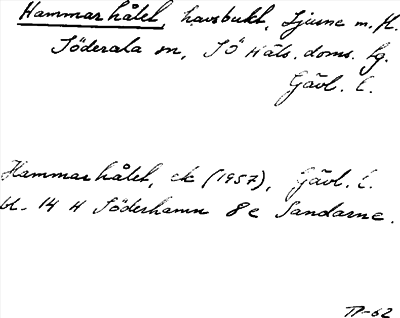 Hammarhålet, havsbukt, Ljusne m. fl.
Söderala sn, SÖ Häls. doms. tg.
Gävl. l.
Hammarhålet, ek (1957), Gävl. l.
bl. 14 H Söderhamn 8 c Sandarne.
TP-62